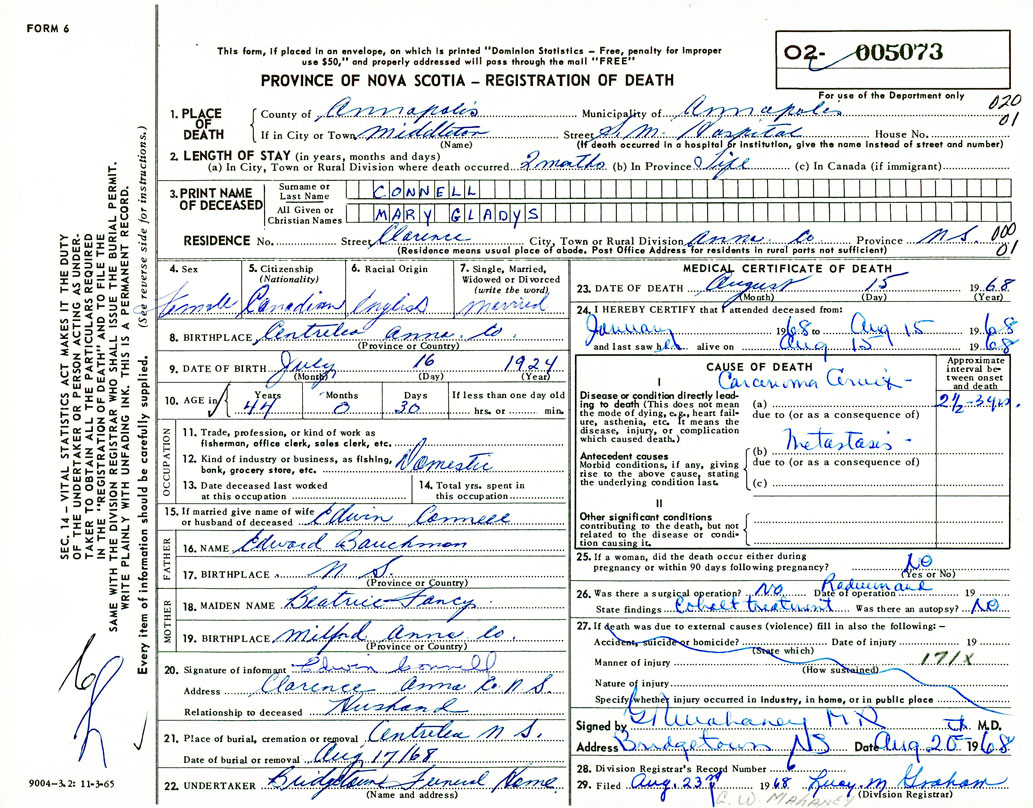 FORM 6
This form, if placed in an envelope, on which is printed "Dominion Statistics – Free, penalty for improper
use $50," and properly addressed will pass through the mail "FREE"
PROVINCE OF NOVA SCOTIA – REGISTRATION OF DEATH
02- 005073
For use of the Department only
020
01
1. PLACE OF DEATH
County of Annapolis Municipality of Annapolis
If in City or Town Middleton Street S. M. Hospital House No.
(Name) (If death occurred in a hospital or institution, give the name instead of street and number)
2. LENGTH OF STAY (in years, months and days)
(a) In City, Town or Rural Division where death occurred 2 months (b) In Province Life (c) In Canada (if immigrant)
3. PRINT NAME OF DECEASED
Surname or Last Name CONNELL
All Given or Christian Names MARY GLADYS
RESIDENCE No. Street Clarence City, Town or Rural Division Anna Co Province N.S.
(Residence means usual place of abode. Post Office Address for residents in rural parts not sufficient)
000
01
4. Sex Female
5. Citizenship (Nationality) Canadian
6. Racial Origin English
7. Single, Married, Widowed or Divorced (write the word) Married
8. BIRTHPLACE Centrelea Anna Co.
(Province or Country)
9. DATE OF BIRTH July 16 1924
(Month) (Day) (Year)
10. AGE in Years Months Days If less than one day old
44 0 30 hrs. or min.
OCCUPATION
11. Trade, profession, or kind of work as
fisherman, office clerk, sales clerk, etc.
12. Kind of industry or business, as fishing,
bank, grocery store, etc. Domestic
13. Date deceased last worked
at this occupation
14. Total yrs. spent in
this occupation
15. If married give name of wife
or husband of deceased Edwin Connell
FATHER
16. NAME Edward Bauchman
17. BIRTHPLACE N S.
(Province or Country)
MOTHER
18. MAIDEN NAME Beatrice Fancy
19. BIRTHPLACE Milford Anna Co.
(Province or Country)
20. Signature of informant Edwin Connell
Address Clarence Anna Co N S.
Relationship to deceased Husband
21. Place of burial, cremation or removal Centrelea N S.
Date of burial or removal Aug 17/68
22. UNDERTAKER Bridgetown Funeral Home
(Name and address)
MEDICAL CERTIFICATE OF DEATH
23. DATE OF DEATH August 15 1968
(Month) (Day) (Year)
24. I HEREBY CERTIFY that I attended deceased from:
January 1968 to Aug 15 1968
and last saw her alive on Aug 15 1968
CAUSE OF DEATH
Approximate interval between onset and death
I
Disease or condition directly leading to death (This does not mean
the mode of dying, e.g., heart failure, asthenia, etc. It means the
disease, injury, or complication
which caused death.)
Carcinoma Cervix -
(a) 2½-3 yrs.
due to (or as a consequence of)
Antecedent causes
Morbid conditions, if any, giving
rise to the above cause, stating
the underlying condition last.
(b) Metastasis -
due to (or as a consequence of)
(c)
II
Other significant conditions
contributing to the death, but not
related to the disease or condition causing it.
25. If a woman, did the death occur either during
pregnancy or within 90 days following pregnancy? No
(Yes or No)
26. Was there a surgical operation? No. Date of operation Radium and 19
State findings Cobalt treatment Was there an autopsy? No
27. If death was due to external causes (violence) fill in also the following:–
Accident, suicide or homicide? Date of injury 19
(State which)
Manner of injury 171/X
(How sustained)
Nature of injury
Specify whether injury occurred in Industry, in home, or in public place
Signed by G W Mahaney MD M.D.
Address Bridgetown NS Date Aug. 20 1968
28. Division Registrar's Record Number 6
29. Filed Aug. 23rd 1968 Lucy M Graham
(Division Registrar)
G. W. MAHANEY
SEC. 14 – VITAL STATISTICS ACT MAKES IT THE DUTY
OF THE UNDERTAKER OR PERSON ACTING AS UNDER-
TAKER TO OBTAIN ALL THE PARTICULARS REQUIRED
IN THE "REGISTRATION OF DEATH" AND TO FILE THE
SAME WITH THE DIVISION REGISTRAR WHO SHALL ISSUE THE BURIAL PERMIT.
WRITE PLAINLY WITH UNFADING INK. THIS IS A PERMANENT RECORD.
Every item of information should be carefully supplied. (See reverse side for instructions.)
9004-3.2: 11-3-65